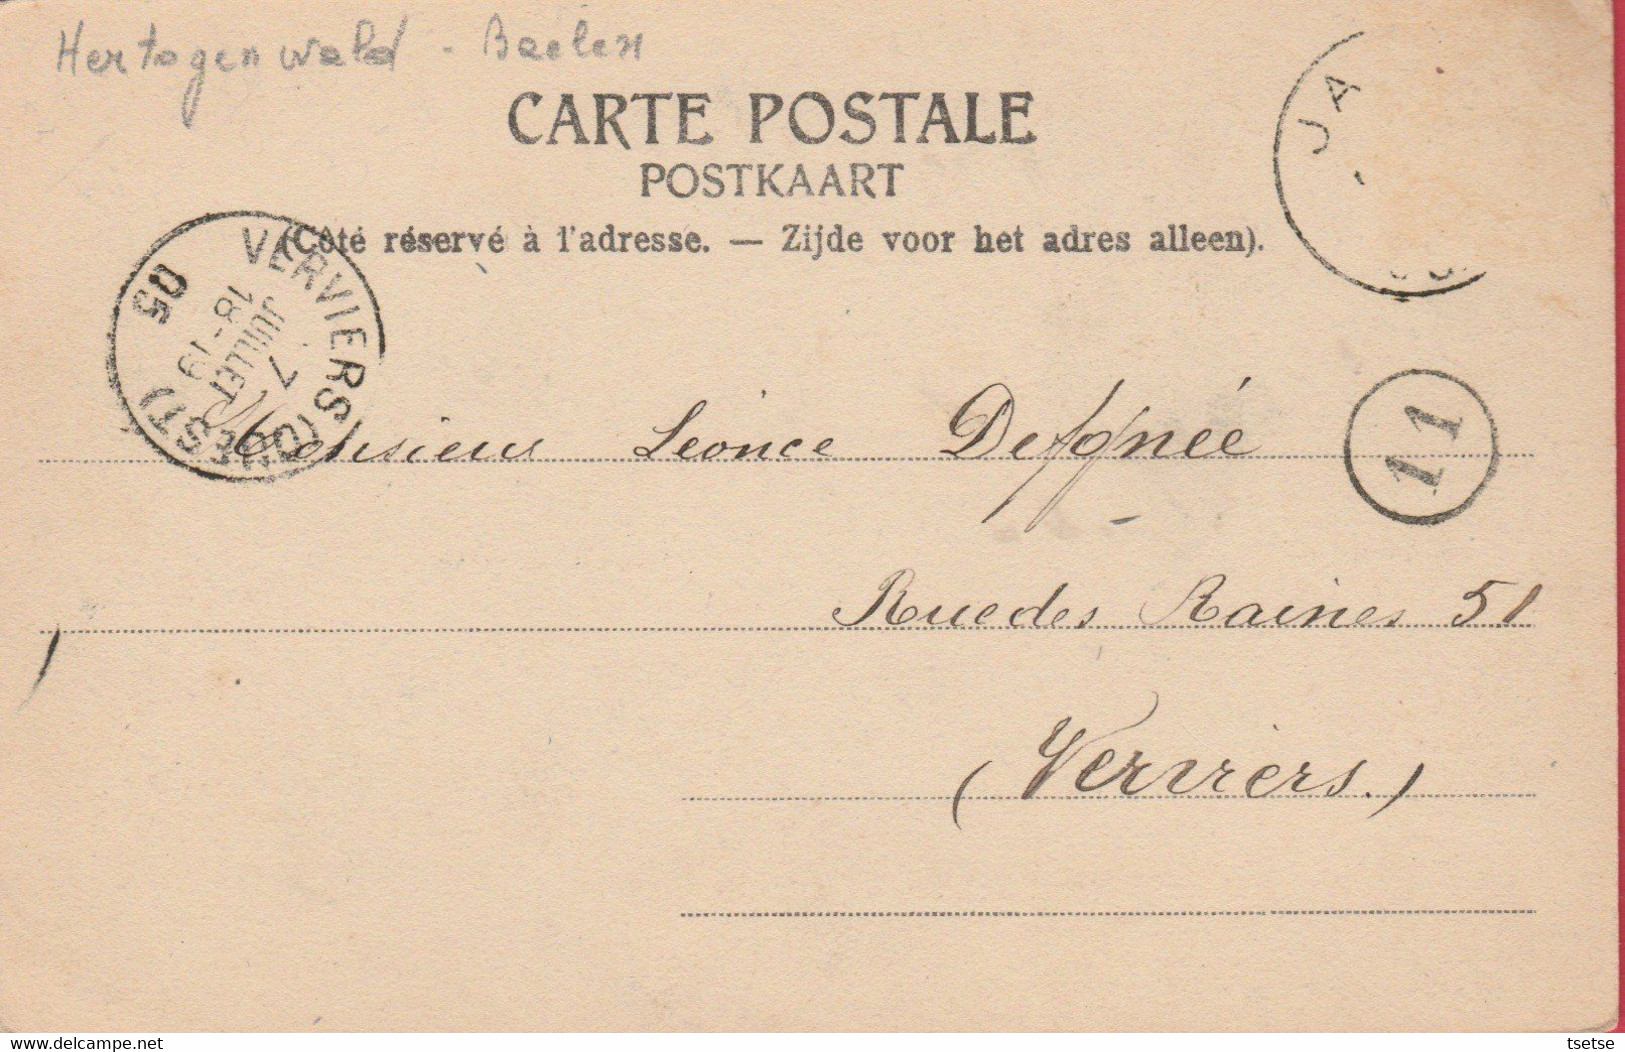 Hertogenwald - Baelen
CARTE POSTALE
POSTKAART
(Côté réservé à l'adresse. — Zijde voor het adres alleen).
JA
VERVIERS (OUEST)
18-19
JUILLET
7
05
11
Monsieur Léonce Defgnée
Rue des Raines 51
(Verviers.)
delcampe.net
tsetse